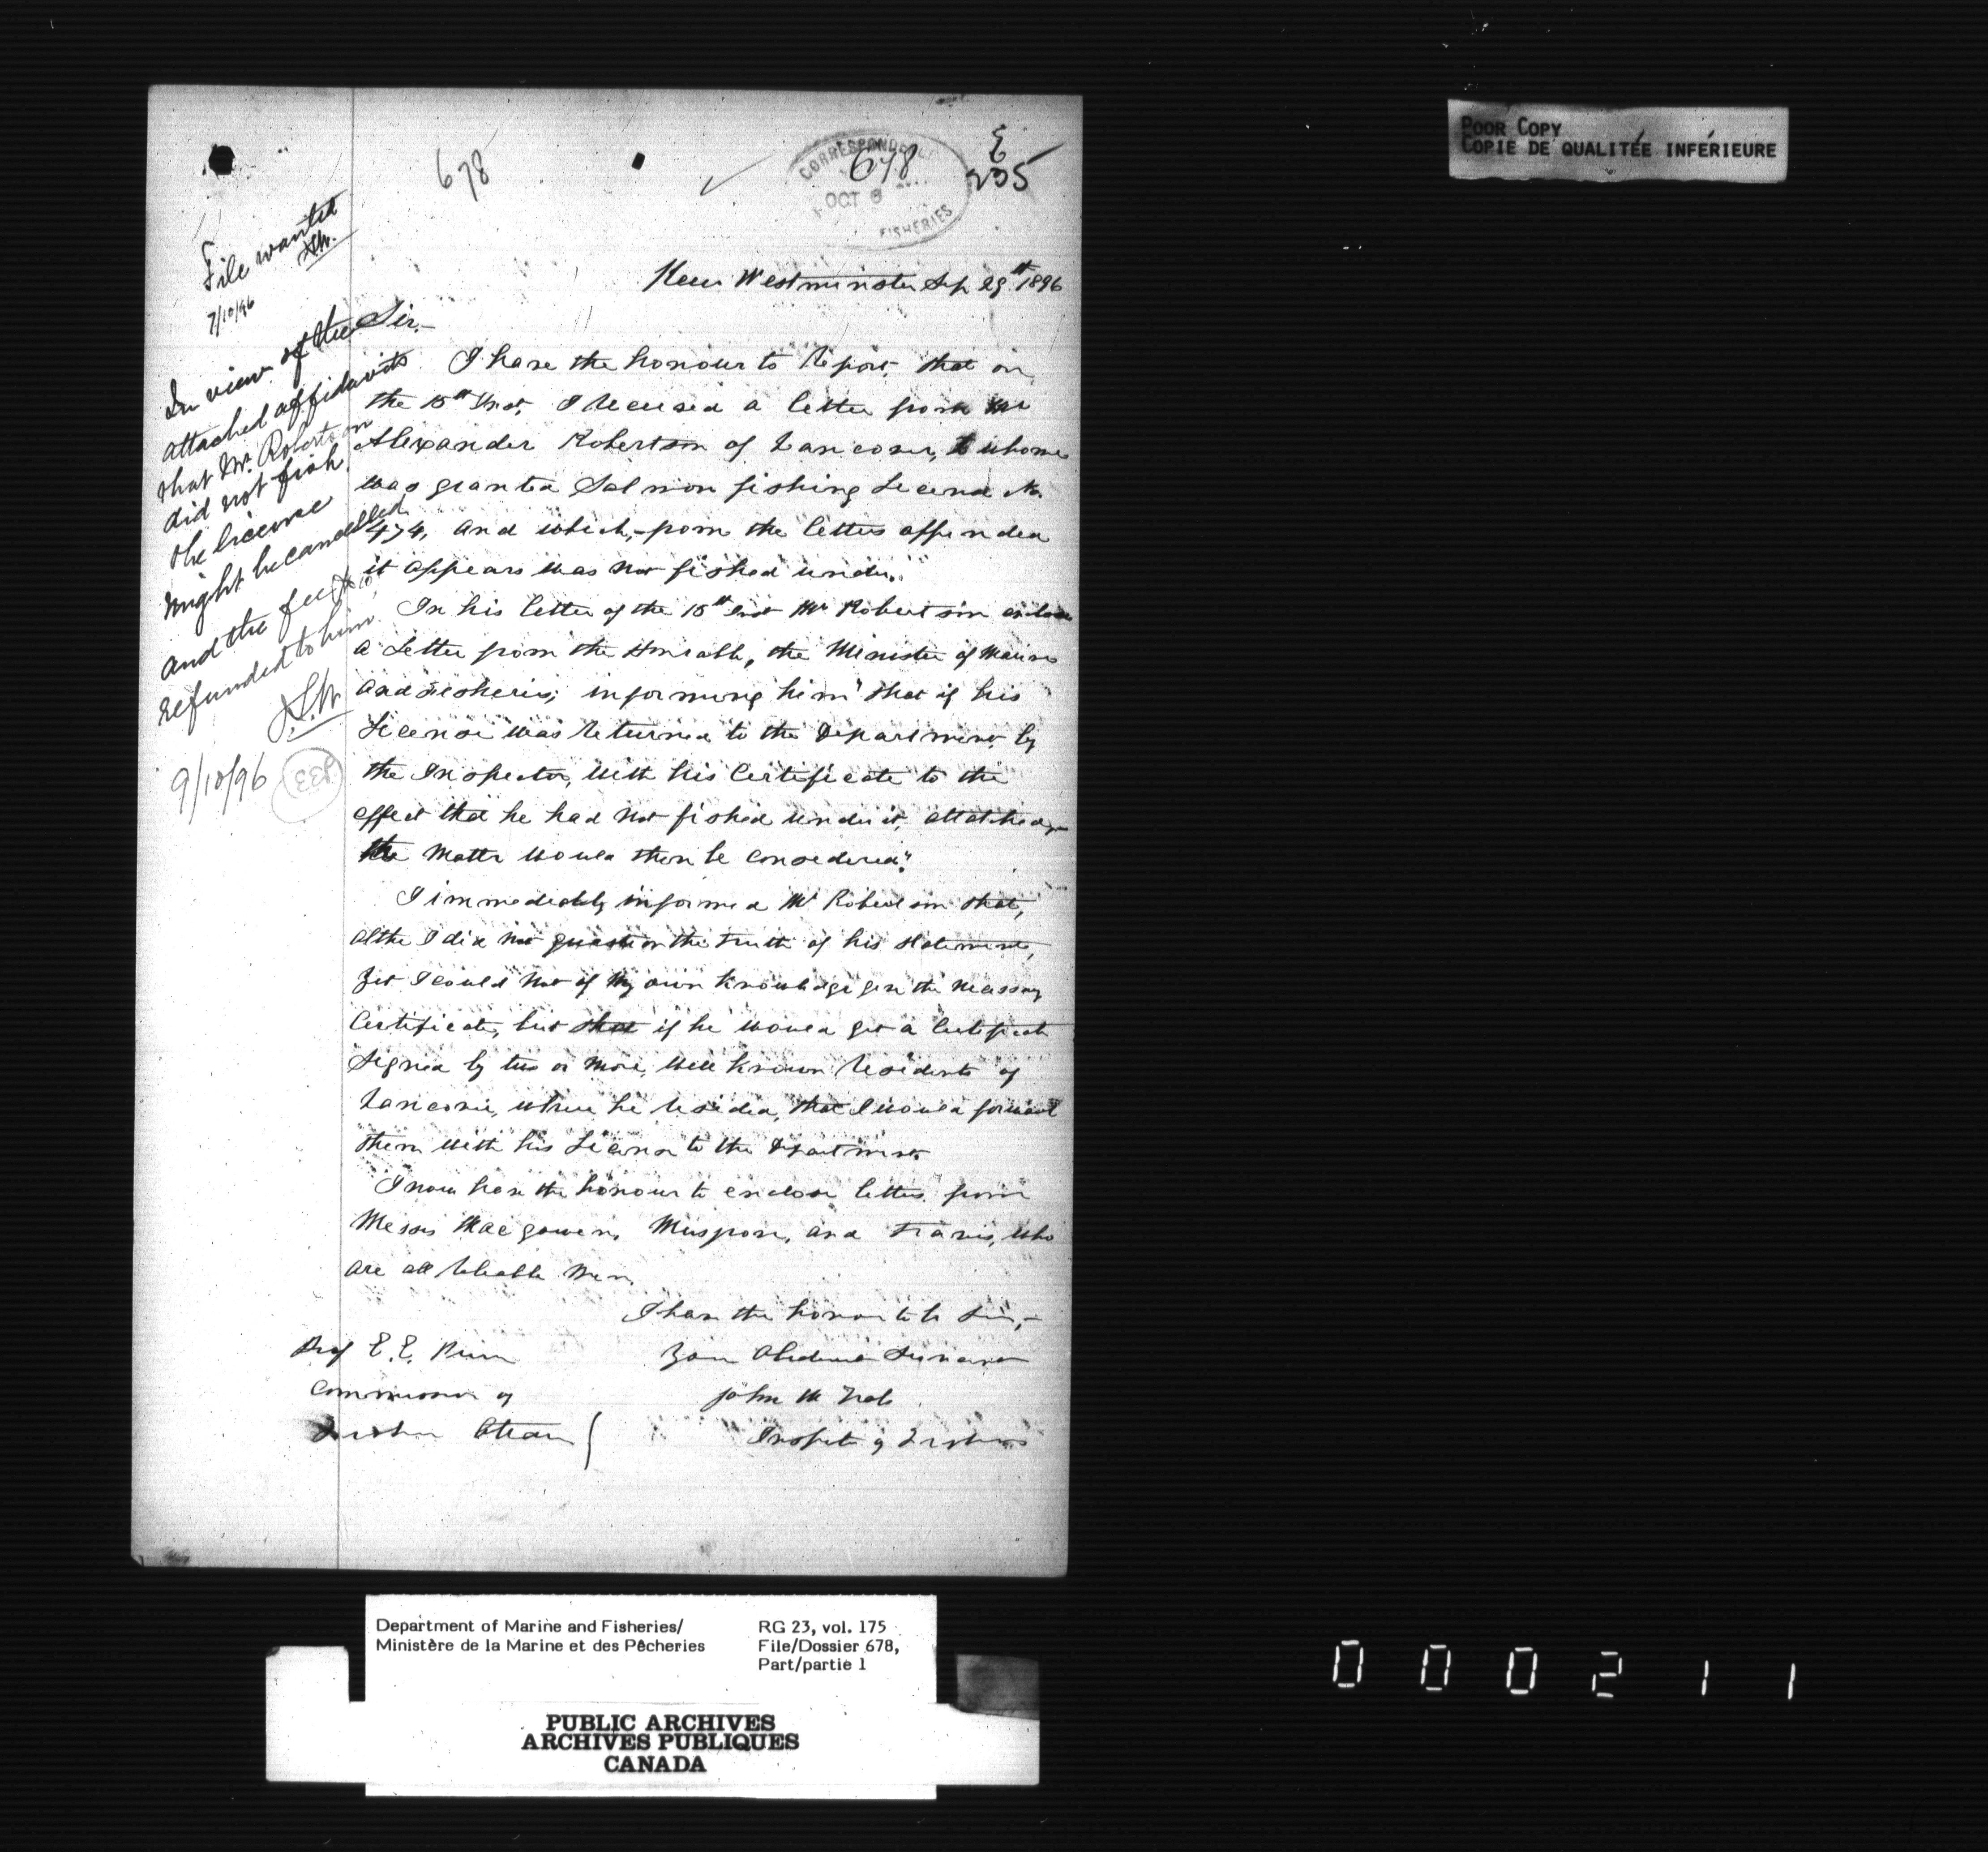 POOR COPY
COPIE DE QUALITÉE INFÉRIEURE
678
CORRESPONDENCE
678
OCT 8
FISHERIES
E
235
File wanted
7/10/96
New Westminster Sep 29th 1896
Sir,-
I have the honour to Report, that on
the 15th Inst, I received a letter from Mr
Alexander Robertson of Vancouver, to whom
was granted Salmon fishing License No.
474, and which, from the letters appended
it appears was not fished under.
In his letter of the 15th inst Mr Robertson enclosed
a Letter from the Honorable, the Minister of Marine
and Fisheries, informing him "that if his
License was returned to the Department by
the Inspector, with his Certificate to the
effect that he had not fished under it, attatched,
the matter would then be considered".
I immediately informed Mr Robertson that,
altho I did not question the truth of his statements,
yet I could not of my own knowledge give the necessary
Certificate, but that if he would get a Certificate
signed by two or more, well known residents of
Vancouver, where he resided, that I would forward
them with his License to the Department.
I now have the honour to enclose letters from
Messrs Macgowen, and Travis, who
are all reliable men.
I have the honor to be Sir,-
Your Obedient Servant
John McNab
Inspector of Fisheries
Prof E. E. Prince
Commissioner of
Fisheries Ottawa
In view of the
attached affidavits
that Mr. Robertson
did not fish,
the license
might be cancelled
and the fee
refunded to him.
9/10/96
333
Department of Marine and Fisheries/
Ministère de la Marine et des Pêcheries
RG 23, vol. 175
File/Dossier 678,
Part/partie 1
PUBLIC ARCHIVES
ARCHIVES PUBLIQUES
CANADA
000211